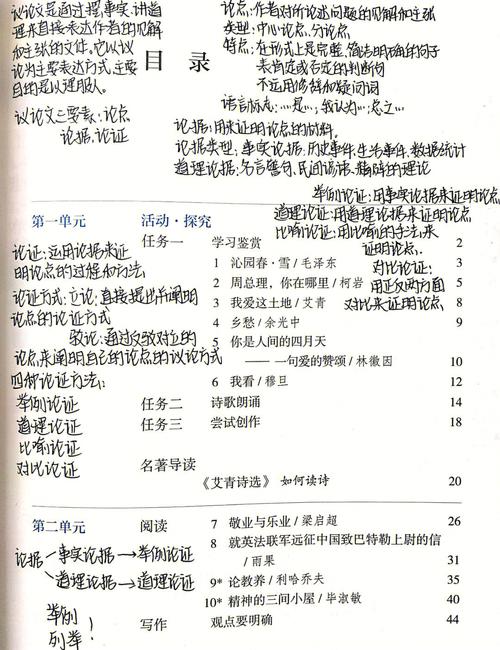 议论文是通过摆事实、讲道
理来直接表达作者的见解
和主张的文体。它以议
论为主要表达方式,主要
目的是以理服人。
议论文三要素:论点
论据,论证
目 录
论点:作者对所论述问题的见解和主张
类型:中心论点,分论点。
特点:在形式上是完整,简洁明确的句子
表肯定或否定的判断句
不应用修辞和疑问词
语言标志:…是…;我认为…;总之…
论据:用来证明论点的材料。
论据类型:事实论据:历史事件,生活事件,数据统计
道理论据:名言警句,民间谚语,精辟的理论
举例论证:用事实论据来证明论点
道理论证:用道理论据来证明论点
比喻论证:用比喻的手法来
证明论点.
对比论证:
用正反两方面
对比来证明论点
第一单元 活动·探究
任务一 学习鉴赏 2
1 沁园春·雪/毛泽东 3
2 周总理,你在哪里/柯岩 5
3 我爱这土地/艾青 8
4 乡愁/余光中 9
5 你是人间的四月天
——一句爱的赞颂/林徽因 10
6 我看/穆旦 12
任务二 诗歌朗诵 14
任务三 尝试创作 18
名著导读
《艾青诗选》 如何读诗 20
论证:运用论据来证
明论点的过程和方法
论证方式:立论:直接提出并阐明
论点的论证方式
驳论:通过反驳对立的
论点来阐明自己的论点的议论方式
四种论证方法:
举例论证
道理论证
比喻论证
对比论证
第二单元 阅读 7 敬业与乐业/梁启超 26
8 就英法联军远征中国致巴特勒上尉的信
/雨果 31
9* 论教养/利哈乔夫 35
10* 精神的三间小屋/毕淑敏 40
写作 观点要明确 44
论据 事实论据→举例论证
道理论据→道理论证
举例
列举!